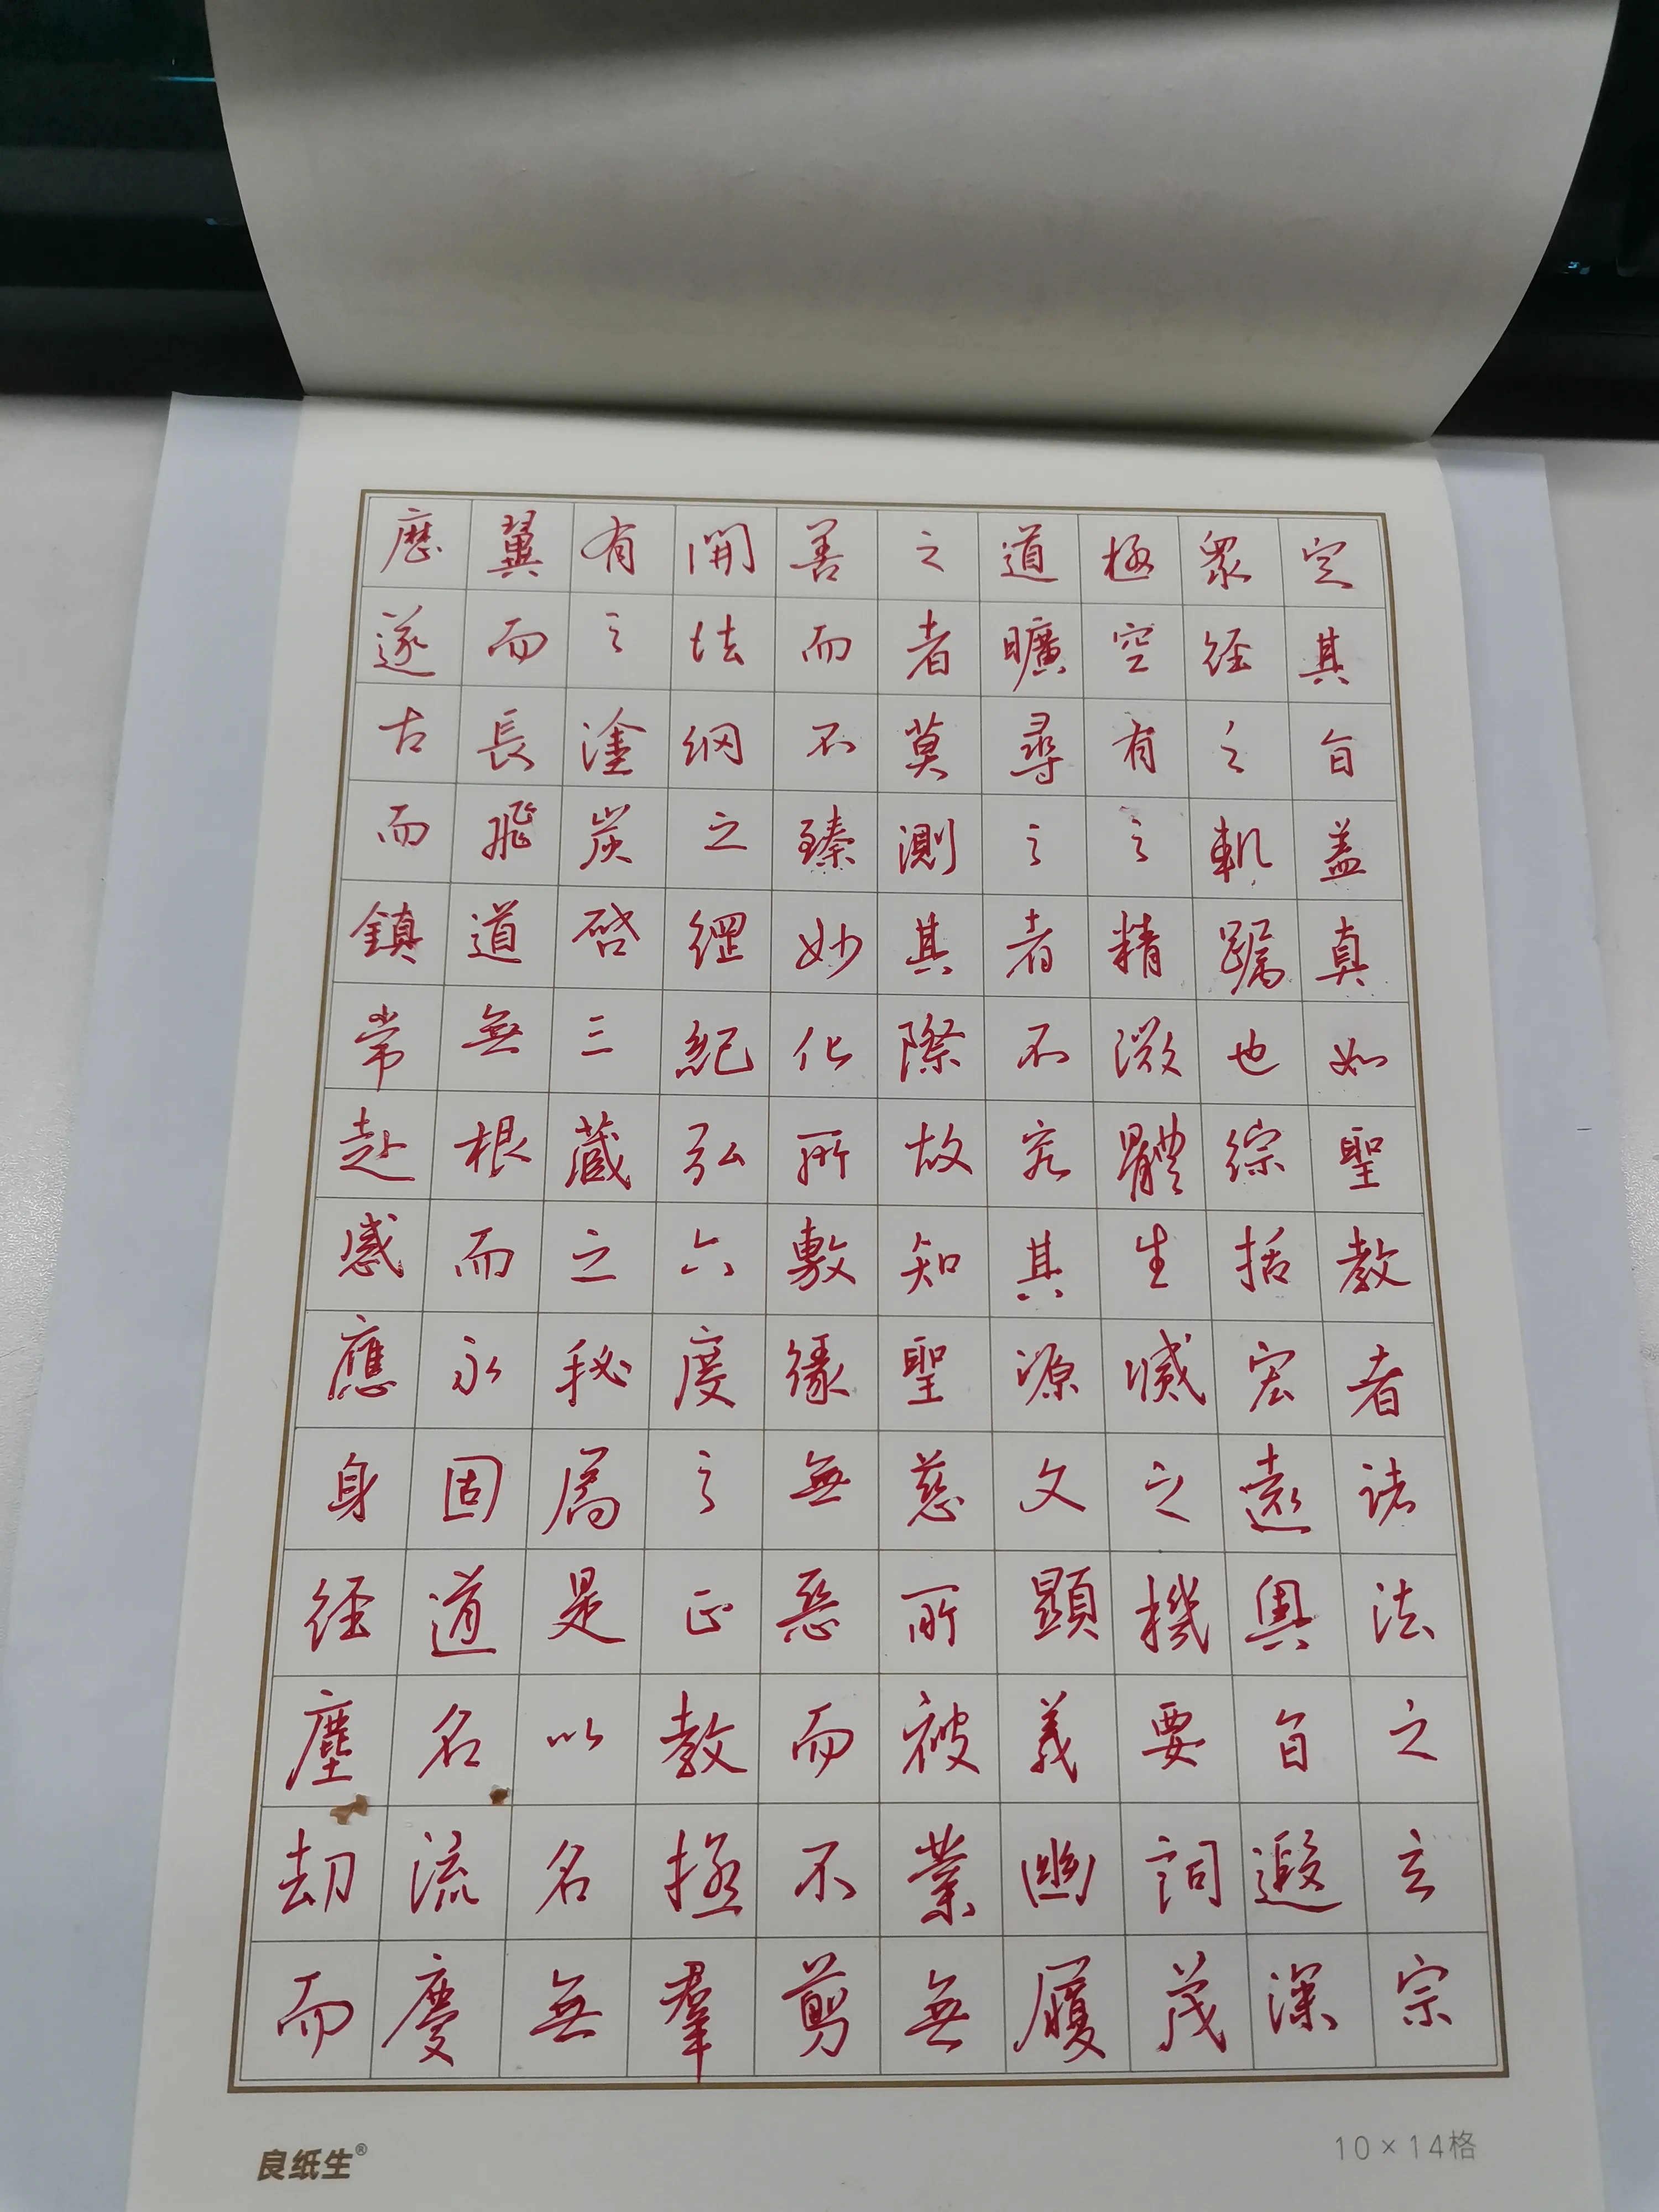 定其旨盖真如聖教者诸法之玄宗
眾经之軌躅也综括宏遠奥旨遐深
極空有之精微體生滅之機要詞茂
道曠尋之者不究其源文顯義幽履
之者莫測其際故知聖慈所被業無
善而不臻妙化所敷緣無惡而不剪
開法網之綱紀弘六度之正教拯羣
有之塗炭啓三藏之秘扃是以名無
翼而長飛道無根而永固道名流慶
歷遂古而鎮常赴感應身经塵劫而
良纸生®
10×14格